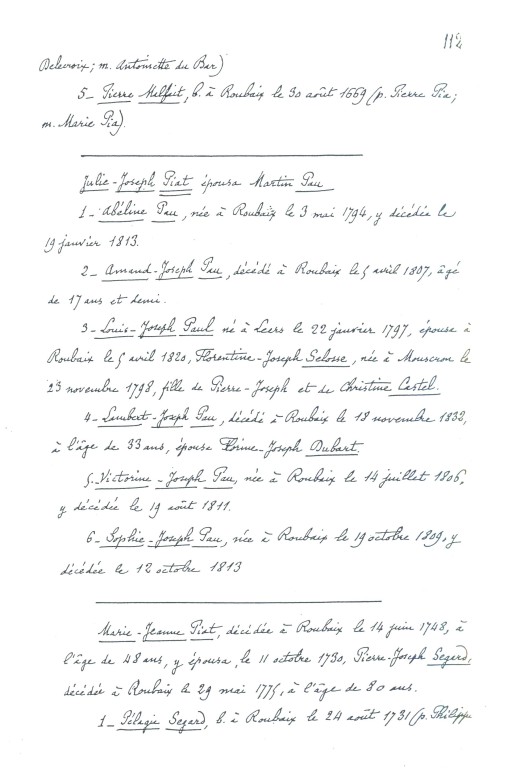 112
Delecroix; m. Antoinette du Bar)
5_ Pierre Malfait, b. à Roubaix le 30 août 1669 (p. Pierre Pia;
m. Marie Pia).
Julie-Joseph Piat épousa Martin Pau
1_ Abéline Pau, née à Roubaix le 3 mai 1794, y décédée le
19 janvier 1813.
2_ Amand-Joseph Pau, décédé à Roubaix le 5 avril 1807, âgé
de 17 ans et demi.
3_ Louis-Joseph Paul né à Leers le 22 janvier 1797, épouse à
Roubaix le 5 avril 1820, Florentine-Joseph Selosse, née à Mouscron le
23 novembre 1798, fille de Pierre-Joseph et de Christine Castel.
4_ Lambert-Joseph Pau, décédé à Roubaix le 18 novembre 1832,
à l'âge de 33 ans, épouse Florine-Joseph Dubart.
5_ Victorine-Joseph Pau, née à Roubaix le 14 juillet 1806,
y décédée le 19 août 1811.
6_ Sophie-Joseph Pau, née à Roubaix le 19 octobre 1809, y
décédée le 12 octobre 1813
Marie-Jeanne Piat, décédée à Roubaix le 14 juin 1748, à
l'âge de 48 ans, y épousa, le 11 octobre 1730, Pierre-Joseph Segard,
décédée à Roubaix le 29 mai 1775, à l'âge de 80 ans.
1_ Pélagie Segard, b. à Roubaix le 24 août 1731 (p. Philippe